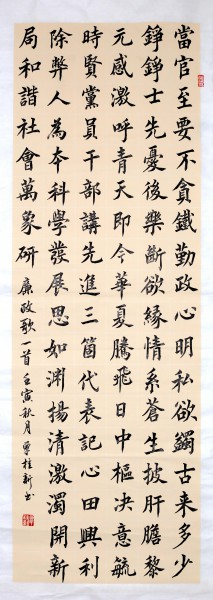 當官至要不貪鐵勤政心明私欲蠲古来多少
錚錚士先憂後樂斷欲緣情系蒼生披肝膽黎
元感激呼青天即今華夏騰飛日中樞决意毓
時賢黨員干部講先進三箇代表記心田興利
除弊人為本科學發展思如淵揚清激濁開新
局和諧社會萬象研 廉政歌一首 壬寅秋月 桂新书